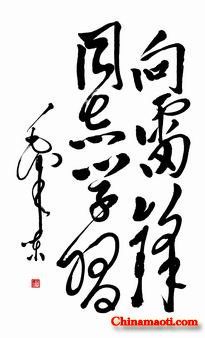 向雷锋
同志学习
毛泽东
Chinamaoti.com